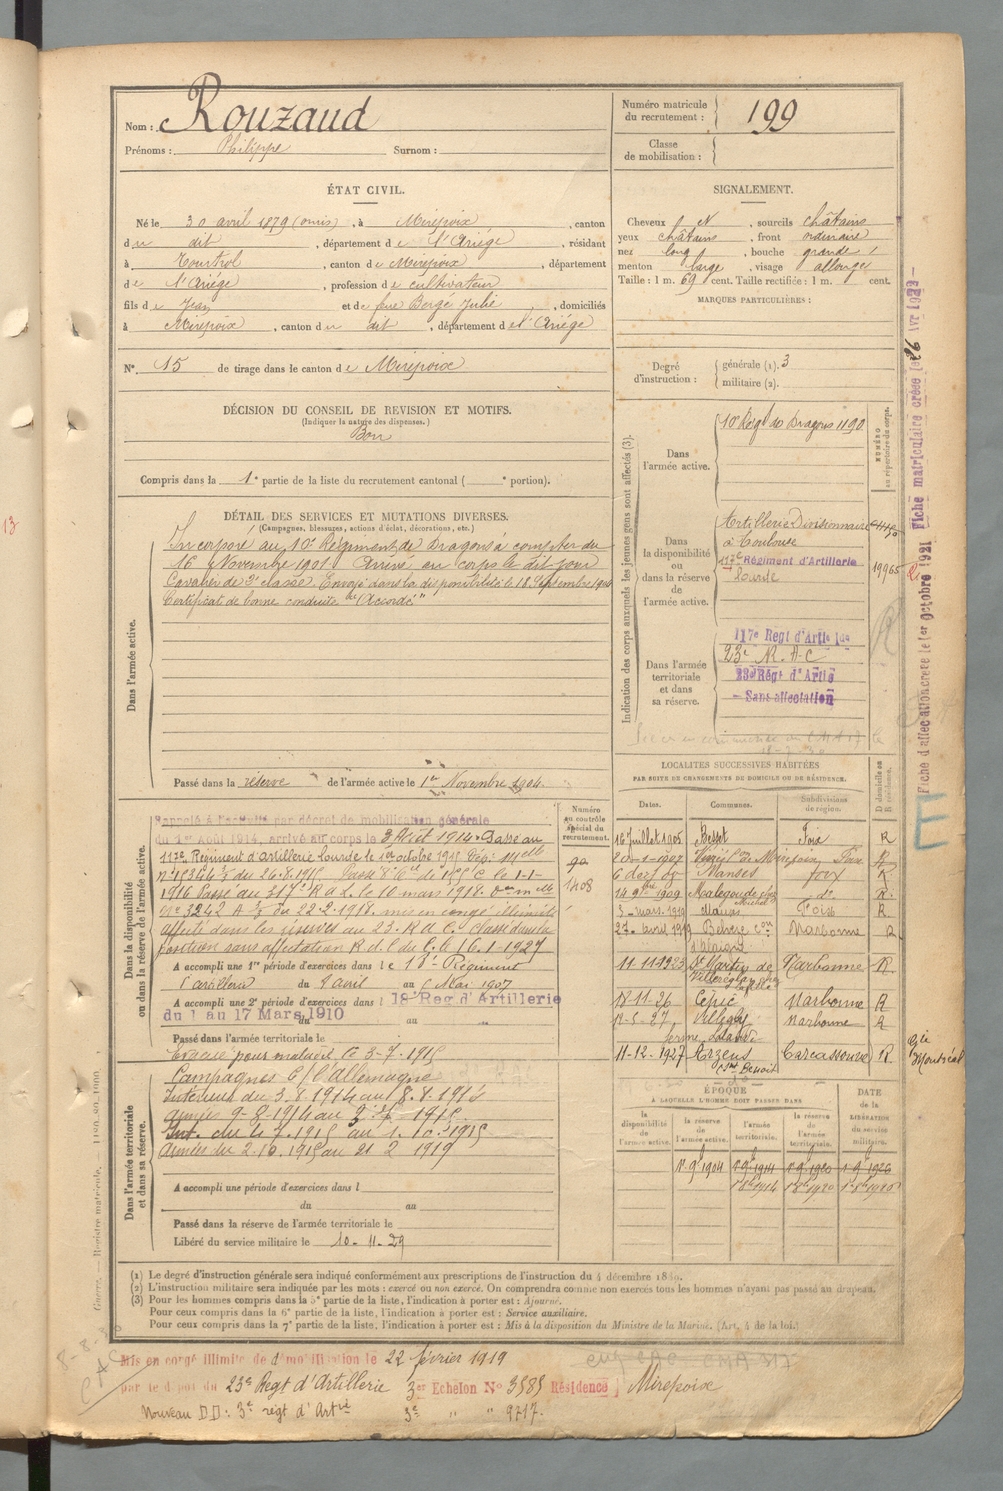 Nom : Rouzaud
Prénoms : Philippe Surnom :
Numéro matricule du recrutement : 199
Classe de mobilisation :
ÉTAT CIVIL.
Né le 30 avril 1879 (omis), à Mirepoix, canton
du dit, département de l'Ariége, résidant
à Tourtrol, canton de Mirepoix, département
de l'Ariége, profession de cultivateur
fils de Jean et de feue Bergé Julie, domiciliés
à Mirepoix, canton du dit, département de l'Ariége
N° 15 de tirage dans le canton de Mirepoix
SIGNALEMENT.
Cheveux N, sourcils châtains
yeux châtains, front ordinaire
nez long, bouche grande
menton large, visage allongé
Taille : 1 m. 69 cent. Taille rectifiée : 1 m. cent.
MARQUES PARTICULIÈRES :
Degré d'instruction : générale (1). 3
militaire (2).
DÉCISION DU CONSEIL DE REVISION ET MOTIFS.
(Indiquer la nature des dispenses.)
Bon
Compris dans la 1e partie de la liste du recrutement cantonal ( e portion).
DÉTAIL DES SERVICES ET MUTATIONS DIVERSES.
(Campagnes, blessures, actions d'éclat, décorations, etc.)
Dans l'armée active.
Incorporé au 10e Régiment de Dragons à compter du
16 Novembre 1901. Arrivé au corps le dit jour
Cavalier de 2e classe. Envoyé dans la disponibilité le 18 Septembre 1904
Certificat de bonne conduite "Accordé"
Passé dans la réserve de l'armée active le 1er Novembre 1904.
Indication des corps auxquels les jeunes gens sont affectés (3).
NUMÉRO au répertoire du corps.
Dans l'armée active.
10e Régt de Dragons 1190
Dans la disponibilité ou dans la réserve de l'armée active.
Artillerie Divisionnaire
à Toulouse
117e Régiment d'Artillerie 19965
lourde
Dans l'armée territoriale et dans sa réserve.
117e Regt d'Artie lde
23e R. A. C
23e Régt d'Artie
Sans affectation
Fiche matriculaire créée le 26 Avr 1923
Fiche d'affectation créée le 1er Octobre 1921
LOCALITÉS SUCCESSIVES HABITÉES
PAR SUITE DE CHANGEMENTS DE DOMICILE OU DE RÉSIDENCE.
Dates. Communes. Subdivisions de région. D domicile ou R résidence.
16 Juillet 1905 Besset Foix R
20-1-1907 Foix R
6 dec 1908 Manses foix R
14 9bre 1909 Malegoude do R
3 mars 1919 Manses Foix R
27 avril 1919 Narbonne R
11-11-1923 St Martin de Villereglan Narbonne R
18-11-26 Cépie Narbonne R
Villegly Narbonne R
11-12-1927 Arzens Carcassonne R
Montréal
Dans la disponibilité ou dans la réserve de l'armée active.
Numéro au contrôle spécial du recrutement.
90
1408
Rappelé à l'activité par décret de mobilisation générale
du 1er Août 1914, arrivé au corps le 3 Août 1914. Passé au
117e Régiment d'artillerie lourde le 1er octobre 1915 Dép. Melle
1916 Passé au 317e R A L le 10 mars 1918.
n° 3242 A du 22-2-1918. mis en congé illimité
affecté dans les réserves au 23e R A C. Classé dans la
position sans affectation R. d. C. du C. le 16-1-1927
A accompli une 1re période d'exercices dans le 18e Régiment
d'artillerie du 9 avril au 6 Mai 1907
A accompli une 2e période d'exercices dans l 18e Reg d'Artillerie
du 1 au 17 Mars 1910 du au
Passé dans l'armée territoriale le
Evacué pour maladie le 3-7-1915
Dans l'armée territoriale et dans sa réserve.
Campagnes c/ l'allemagne
Intérieur du 3.8.1914 au 8.8.1914
Armées 9-8-1914 au 3-7-1915
Int. du 4.7.1915 au 1.10.1915
Armées du 2.10.1915 au 21 2 1919
A accompli une période d'exercices dans l
du au
Passé dans la réserve de l'armée territoriale le
Libéré du service militaire le 10-11-29
ÉPOQUE
A LAQUELLE L'HOMME DOIT PASSER DANS
DATE de la LIBÉRATION du service militaire.
la disponibilité de l'armée active. la réserve de l'armée active. l'armée territoriale. la réserve de l'armée territoriale.
1er 9bre 1904 1er 9bre 1914 1er 9bre 1920 1er 9bre 1926
1er 8bre 1914 1er 8bre 1920 1er 8bre 1926
(1) Le degré d'instruction générale sera indiqué conformément aux prescriptions de l'instruction du 4 décembre 1889.
(2) L'instruction militaire sera indiquée par les mots : exercé ou non exercé. On comprendra comme non exercés tous les hommes n'ayant pas passé au drapeau.
(3) Pour les hommes compris dans la 5e partie de la liste, l'indication à porter est : Ajourné.
Pour ceux compris dans la 6e partie de la liste, l'indication à porter est : Service auxiliaire.
Pour ceux compris dans la 7e partie de la liste, l'indication à porter est : Mis à la disposition du Ministre de la Marine. (Art. 4 de la loi.)
Guerre. — Registre matricule.
Mis en congé illimité de démobilisation le 22 février 1919
par le dépôt du 23e Regt d'Artillerie 3er Echelon N° 3585 Résidence Mirepoix
Nouveau DD : 3e régt d'Artie 3e " " 9717.